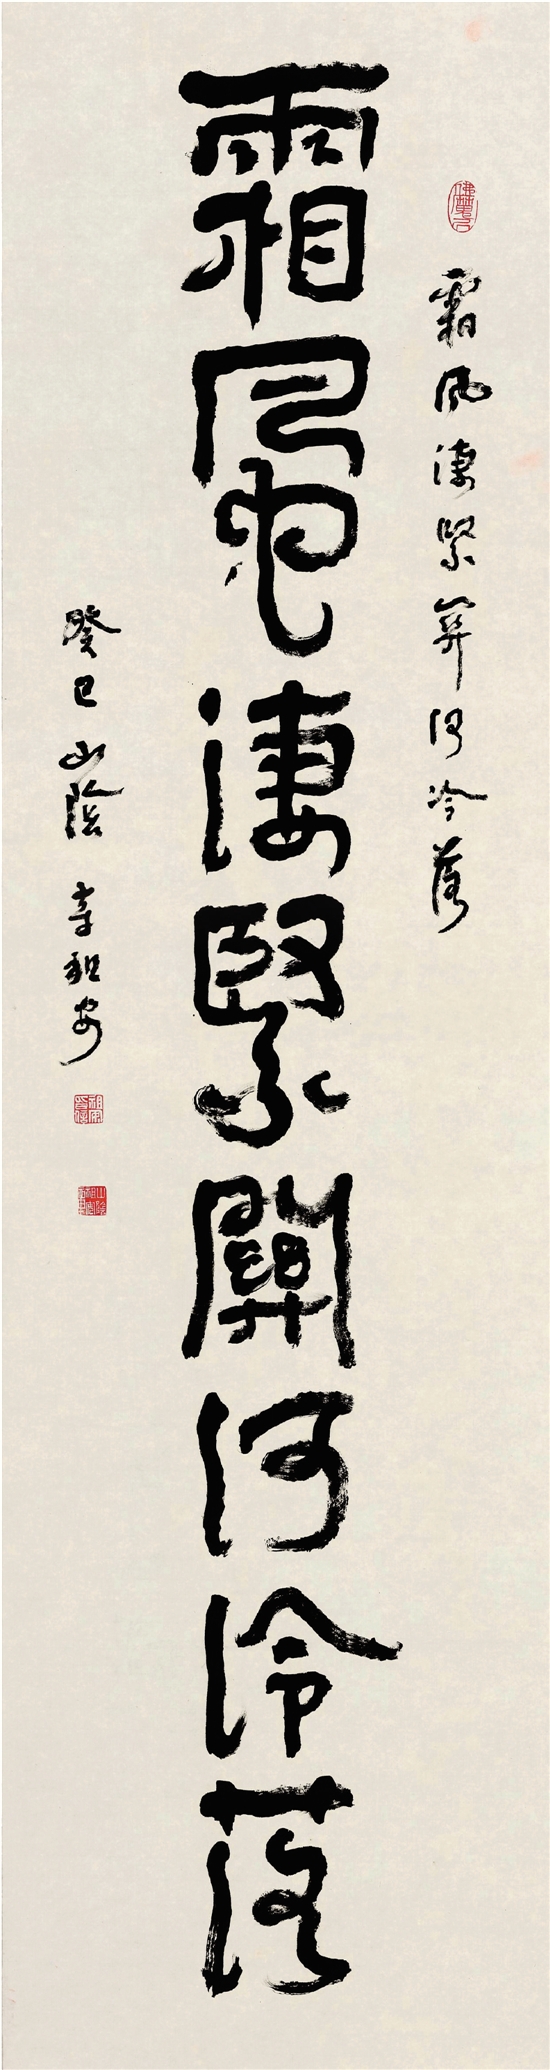 霜風淒緊關河冷落
霜風淒緊關河冷落
癸巳山陰章祖安